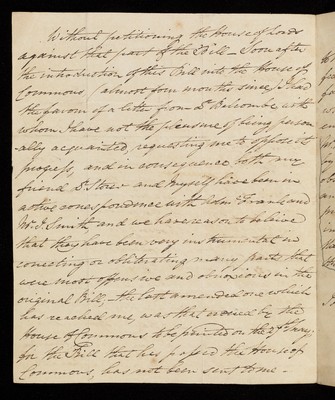 Without petitioning the House of Lords
against that part of the Bill - Soon after
the introduction of this Bill into the House of
Commons (almost four months since) I had
the favor of a letter from Dr
whom I have not the pleasure of being person
-ally acquainted, requesting me to oppose its
progress, and in consequence both my
friend Dr and myself have been in
active correspondence with and
Mr J. Smith, and we have reason to believe
that they have been very instrumental in
correcting or obliterating many parts that
were most offensive and obnoxious in the
original Bill, the last amended one which
has reached me, was that ordered by the
House of Commons to be printed on the 27 May;
for the Bill that has passed the House of
Commons, has not been sent to me -